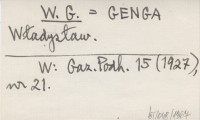 W. G. = GENGA
Władysław.
W: Gaz. Podh. 15 (1927),
nr 21.